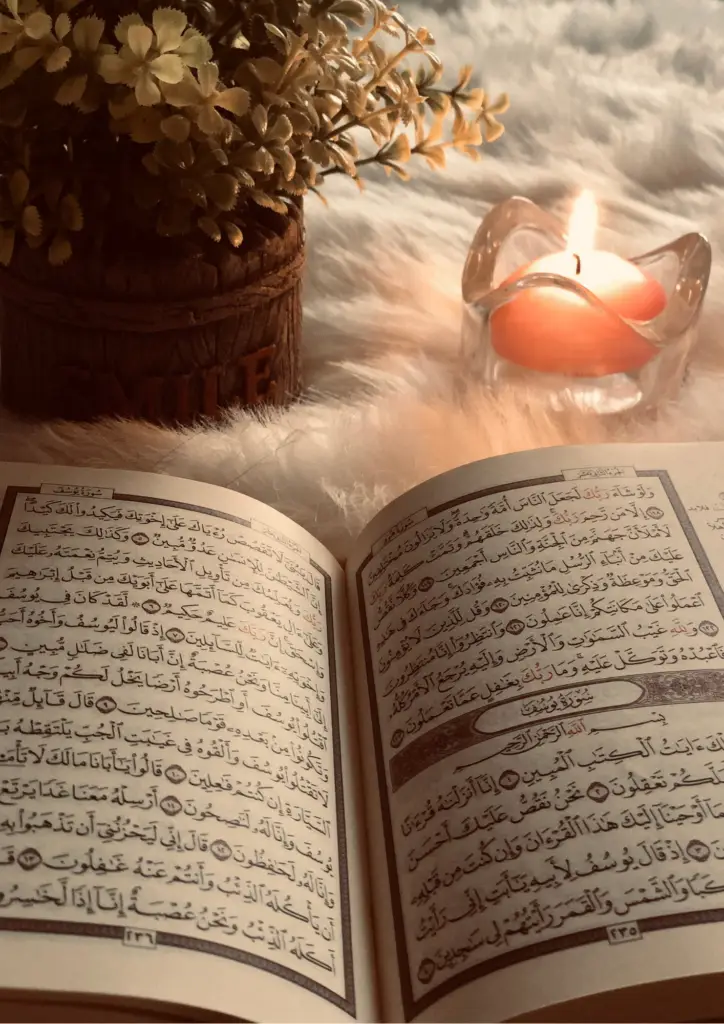 سورة يوسف
الجزء الثاني عشر
وَلَوْ شَآءَ رَبُّكَ لَجَعَلَ ٱلنَّاسَ أُمَّةً وَٰحِدَةً وَلَا يَزَالُونَ مُخْتَلِفِينَ
١١٨ إِلَّا مَن رَّحِمَ رَبُّكَ وَلِذَٰلِكَ خَلَقَهُمْ وَتَمَّتْ كَلِمَةُ رَبِّكَ
لَأَمْلَأَنَّ جَهَنَّمَ مِنَ ٱلْجِنَّةِ وَٱلنَّاسِ أَجْمَعِينَ ١١٩ وَكُلًّا نَّقُصُّ
عَلَيْكَ مِنْ أَنۢبَآءِ ٱلرُّسُلِ مَا نُثَبِّتُ بِهِۦ فُؤَادَكَ وَجَآءَكَ فِي هَٰذِهِ
ٱلْحَقُّ وَمَوْعِظَةٌ وَذِكْرَىٰ لِلْمُؤْمِنِينَ ١٢٠ وَقُل لِّلَّذِينَ لَا يُؤْمِنُونَ
ٱعْمَلُوا۟ عَلَىٰ مَكَانَتِكُمْ إِنَّا عَٰمِلُونَ ١٢١ وَٱنتَظِرُوٓا۟ إِنَّا مُنتَظِرُونَ
١٢٢ وَلِلَّهِ غَيْبُ ٱلسَّمَٰوَٰتِ وَٱلْأَرْضِ وَإِلَيْهِ يُرْجَعُ ٱلْأَمْرُ كُلُّهُۥ
فَٱعْبُدْهُ وَتَوَكَّلْ عَلَيْهِ وَمَا رَبُّكَ بِغَٰفِلٍ عَمَّا تَعْمَلُونَ ١٢٣
سُورَةُ يُوسُفَ
بِسْمِ ٱللَّهِ ٱلرَّحْمَٰنِ ٱلرَّحِيمِ
ءَايَٰتُ ٱلْكِتَٰبِ ٱلْمُبِينِ ١ إِنَّآ أَنزَلْنَٰهُ قُرْءَٰنًا
لَّعَلَّكُمْ تَعْقِلُونَ ٢ نَحْنُ نَقُصُّ عَلَيْكَ أَحْسَنَ
بِمَآ أَوْحَيْنَآ إِلَيْكَ هَٰذَا ٱلْقُرْءَانَ وَإِن كُنتَ مِن قَبْلِهِۦ
٣ إِذْ قَالَ يُوسُفُ لِأَبِيهِ يَٰٓأَبَتِ إِنِّي رَأَيْتُ
كَوْكَبًا وَٱلشَّمْسَ وَٱلْقَمَرَ رَأَيْتُهُمْ لِي سَٰجِدِينَ ٤
٢٣٥
سورة يوسف
الجزء الثاني عشر
قَالَ يَٰبُنَيَّ لَا تَقْصُصْ رُءْيَاكَ عَلَىٰٓ إِخْوَتِكَ فَيَكِيدُوا۟ لَكَ كَيْدًا
إِنَّ ٱلشَّيْطَٰنَ لِلْإِنسَٰنِ عَدُوٌّ مُّبِينٌ ٥ وَكَذَٰلِكَ يَجْتَبِيكَ
رَبُّكَ وَيُعَلِّمُكَ مِن تَأْوِيلِ ٱلْأَحَادِيثِ وَيُتِمُّ نِعْمَتَهُۥ عَلَيْكَ
وَعَلَىٰٓ ءَالِ يَعْقُوبَ كَمَآ أَتَمَّهَا عَلَىٰٓ أَبَوَيْكَ مِن قَبْلُ إِبْرَٰهِيمَ
وَإِسْحَٰقَ إِنَّ رَبَّكَ عَلِيمٌ حَكِيمٌ ٦ لَّقَدْ كَانَ فِي يُوسُفَ
وَإِخْوَتِهِۦٓ ءَايَٰتٌ لِّلسَّآئِلِينَ ٧ إِذْ قَالُوا۟ لَيُوسُفُ وَأَخُوهُ أَحَبُّ
إِلَىٰٓ أَبِينَا مِنَّا وَنَحْنُ عُصْبَةٌ إِنَّ أَبَانَا لَفِي ضَلَٰلٍ مُّبِينٍ ٨
ٱقْتُلُوا۟ يُوسُفَ أَوِ ٱطْرَحُوهُ أَرْضًا يَخْلُ لَكُمْ وَجْهُ أَبِيكُمْ
وَتَكُونُوا۟ مِنۢ بَعْدِهِۦ قَوْمًا صَٰلِحِينَ ٩ قَالَ قَآئِلٌ مِّنْهُمْ
لَا تَقْتُلُوا۟ يُوسُفَ وَأَلْقُوهُ فِي غَيَٰبَتِ ٱلْجُبِّ يَلْتَقِطْهُ
ٱلسَّيَّارَةِ إِن كُنتُمْ فَٰعِلِينَ ١٠ قَالُوا۟ يَٰٓأَبَانَا مَا لَكَ لَا تَأْمَ۫نَّا
يُوسُفَ وَإِنَّا لَهُۥ لَنَٰصِحُونَ ١١ أَرْسِلْهُ مَعَنَا غَدًا يَرْتَعْ
وَإِنَّا لَهُۥ لَحَٰفِظُونَ ١٢ قَالَ إِنِّي لَيَحْزُنُنِيٓ أَن تَذْهَبُوا۟ بِهِۦ
أَن يَأْكُلَهُ ٱلذِّئْبُ وَأَنتُمْ عَنْهُ غَٰفِلُونَ ١٣
أَكَلَهُ ٱلذِّئْبُ وَنَحْنُ عُصْبَةٌ إِنَّآ إِذًا لَّخَٰسِرُونَ
٢٣٦
SMILE